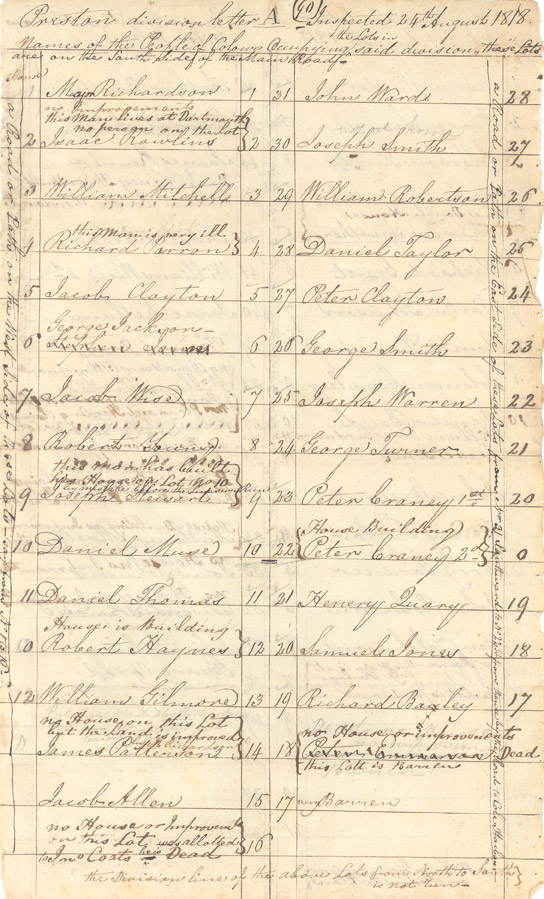 Preston division letter A (90) Inspected 24th August 1818.
Names of the People of Colour Occupying the Lots in said division, these Lots
are on the South Side of the Main Road -
House
1 Major Richardson 1 31 John Wards 28
no improvements
this Man lives at Dartmouth
no person on the Lot
2 Isaac Rowlins 2 30 Joseph Smith 27
3 William Mitchell 3 29 William Robertson 26
this Man is very ill
4 Richard Parron 4 28 Daniel Taylor 25
5 Jacob Clayton 5 27 Peter Clayton 24
George Jackson -
6 6 26 George Smith 23
7 Jacob Wise 7 25 Joseph Warren 22
8 Robert 8 24 George Turner 21
this man has built
his House on Lot No 10
9 Joseph Stewart 9 23 Peter Craney 1st 20
House Building
10 Daniel Muse 10 22 Peter Craney 2d 0
11 Daniel Thomas 11 21 Henery Quary 19
House is Building
0 Robert Haynes 12 20 Samuel Jones 18
12 William Gilmore 13 19 Richard Bagley 17
no House on this Lot
but the Land is improved
James Patterson 14 18 no House or improvements
Dead
this Lott is Barren
Jacob Allen 15 17 very Barren
no House or Improvement
on this Lot was allotted
to Jno Coats he is Dead 16
the Division lines of the above Lots from North to South
is not run -
a Road or Path on the West side of
a Road or Path on the East Side of these Lots from